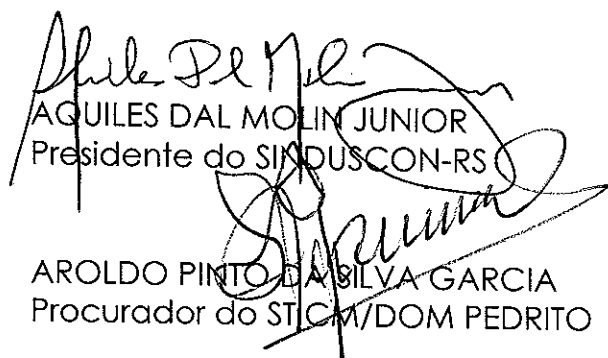 AQUILES DAL MOLIN JUNIOR
Presidente do SINDUSCON-RS
AROLDO PINTO DA SILVA GARCIA
Procurador do STICM/DOM PEDRITO